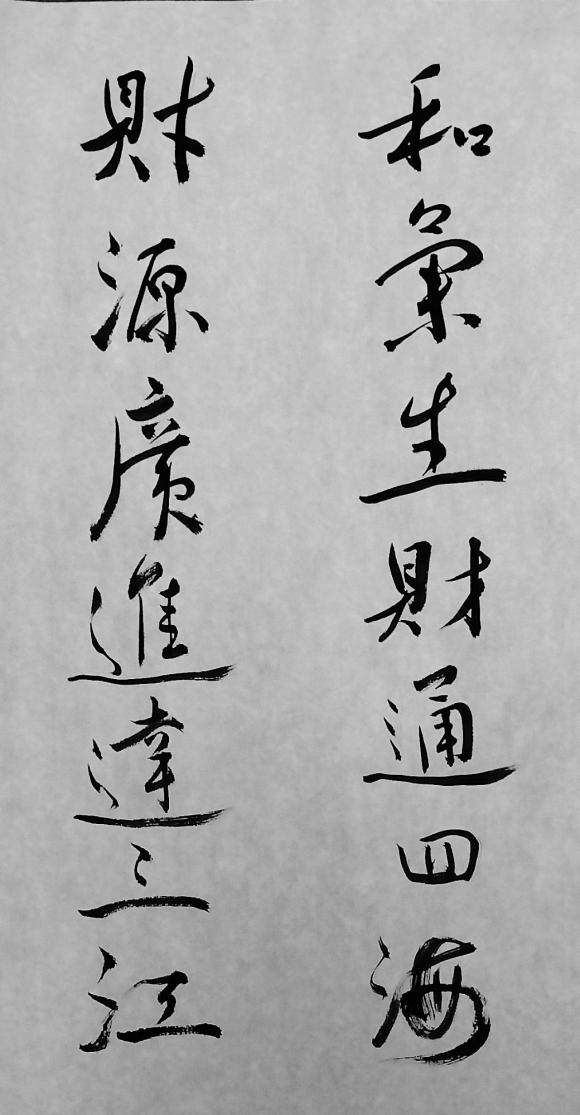 和氣生財通四海
財源廣進達三江